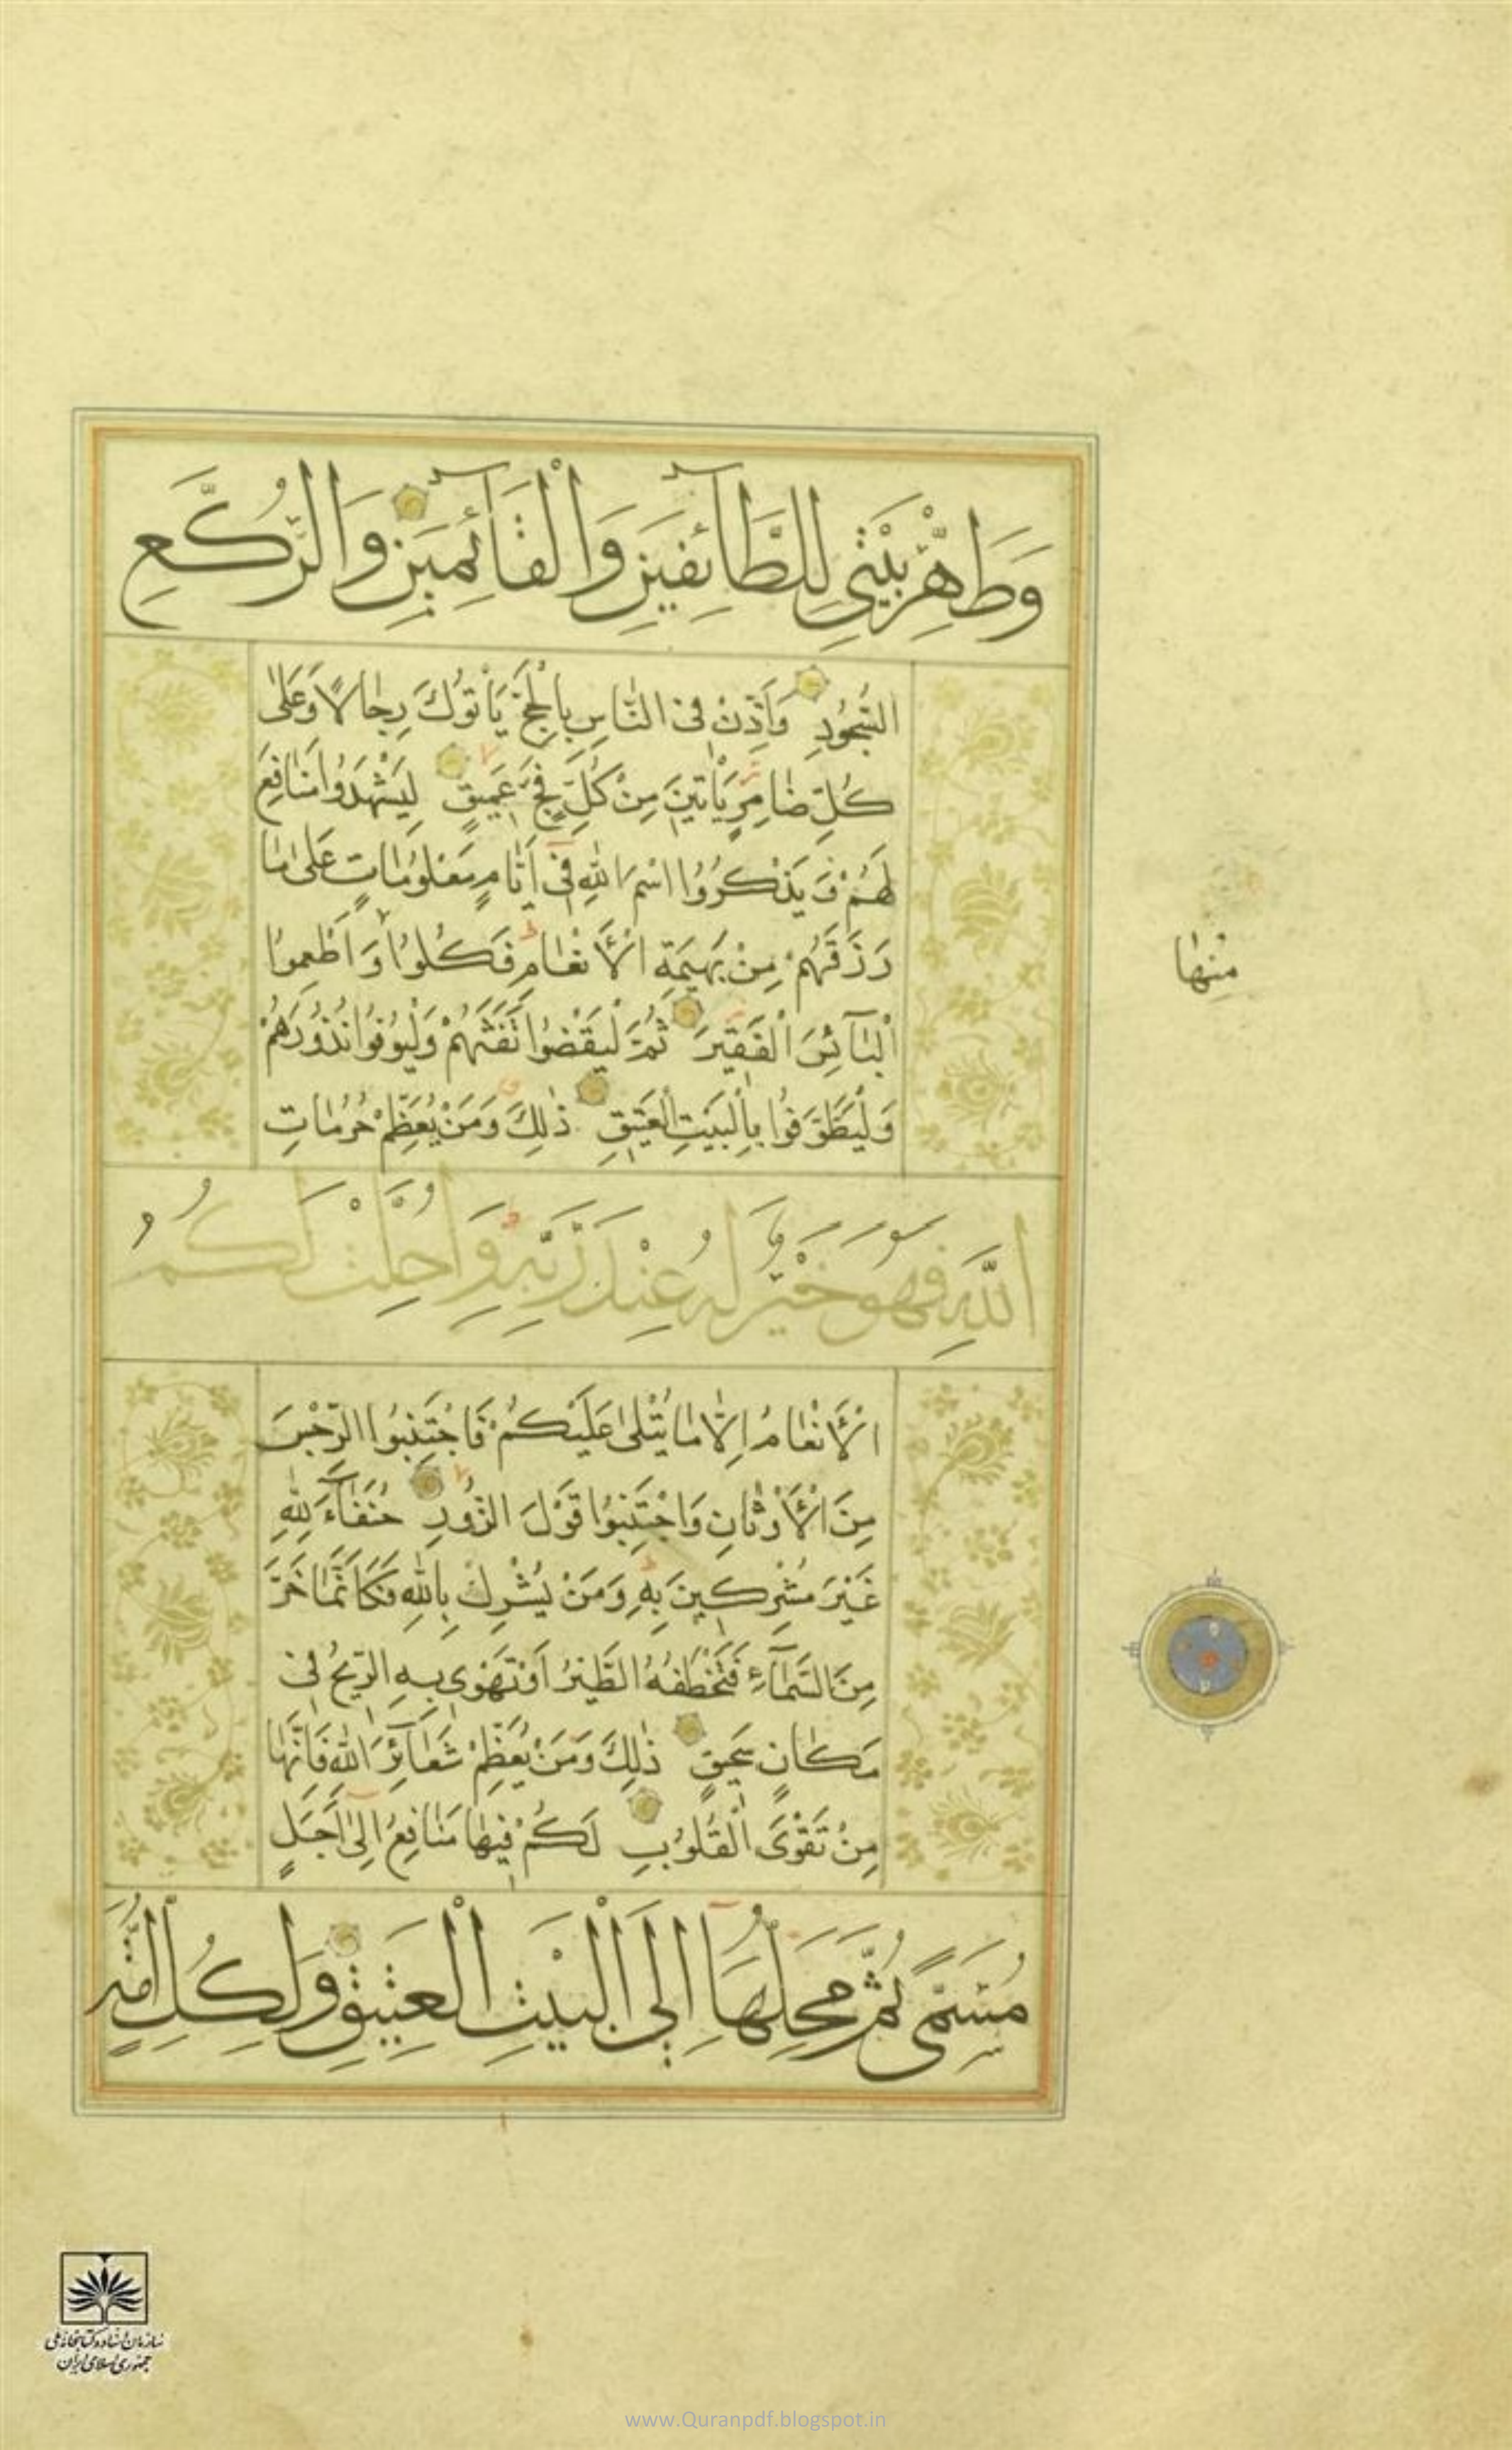 وَطَهِّرْ بَيْتِيَ لِلطَّآئِفِينَ وَالْقَآئِمِينَ وَالرُّكَّعِ
السُّجُودِ وَاَذِّنْ فِى النَّاسِ بِالْحَجِّ يَأْتُوكَ رِجَالًا وَعَلٰى
كُلِّ ضَامِرٍ يَأْتِينَ مِنْ كُلِّ فَجٍّ عَمِيقٍ لِيَشْهَدُوا مَنَافِعَ
لَهُمْ وَيَذْكُرُوا اسْمَ اللّٰهِ فِى اَيَّامٍ مَعْلُومَاتٍ عَلٰى مَا
رَزَقَهُمْ مِنْ بَهِيمَةِ الْاَنْعَامِ فَكُلُوا وَاَطْعِمُوا
الْبَآئِسَ الْفَقِيرَ ثُمَّ لْيَقْضُوا تَفَثَهُمْ وَلْيُوفُوا نُذُورَهُمْ
وَلْيَطَّوَّفُوا بِالْبَيْتِ الْعَتِيقِ ذٰلِكَ وَمَنْ يُعَظِّمْ حُرُمَاتِ
اللَّهِ فَهُوَ خَيْرٌ لَهُ عِنْدَ رَبِّهِ وَاُحِلَّتْ لَكُمُ
الْاَنْعَامُ اِلَّا مَا يُتْلٰى عَلَيْكُمْ فَاجْتَنِبُوا الرِّجْسَ
مِنَ الْاَوْثَانِ وَاجْتَنِبُوا قَوْلَ الزُّورِ حُنَفَآءَ لِلّٰهِ
غَيْرَ مُشْرِكِينَ بِهِ وَمَنْ يُشْرِكْ بِاللّٰهِ فَكَاَنَّمَا خَرَّ
مِنَ السَّمَآءِ فَتَخْطَفُهُ الطَّيْرُ اَوْ تَهْوِى بِهِ الرِّيحُ فِى
مَكَانٍ سَحِيقٍ ذٰلِكَ وَمَنْ يُعَظِّمْ شَعَآئِرَ اللّٰهِ فَاِنَّهَا
مِنْ تَقْوَى الْقُلُوبِ لَكُمْ فِيهَا مَنَافِعُ اِلٰى اَجَلٍ
مُسَمًّى ثُمَّ مَحِلُّهَا اِلَى الْبَيْتِ الْعَتِيقِ وَلِكُلِّ اُمَّةٍ
مِنْهَا
سازمان اسناد و کتابخانه ملی
جمهوری اسلامی ایران
www.Quranpdf.blogspot.in